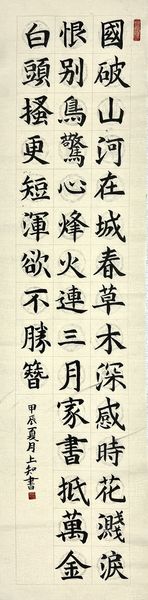 國破山河在城春草木深感時花濺淚
恨别鳥驚心烽火連三月家書抵萬金
白頭搔更短渾欲不勝簪
甲辰夏月上知書